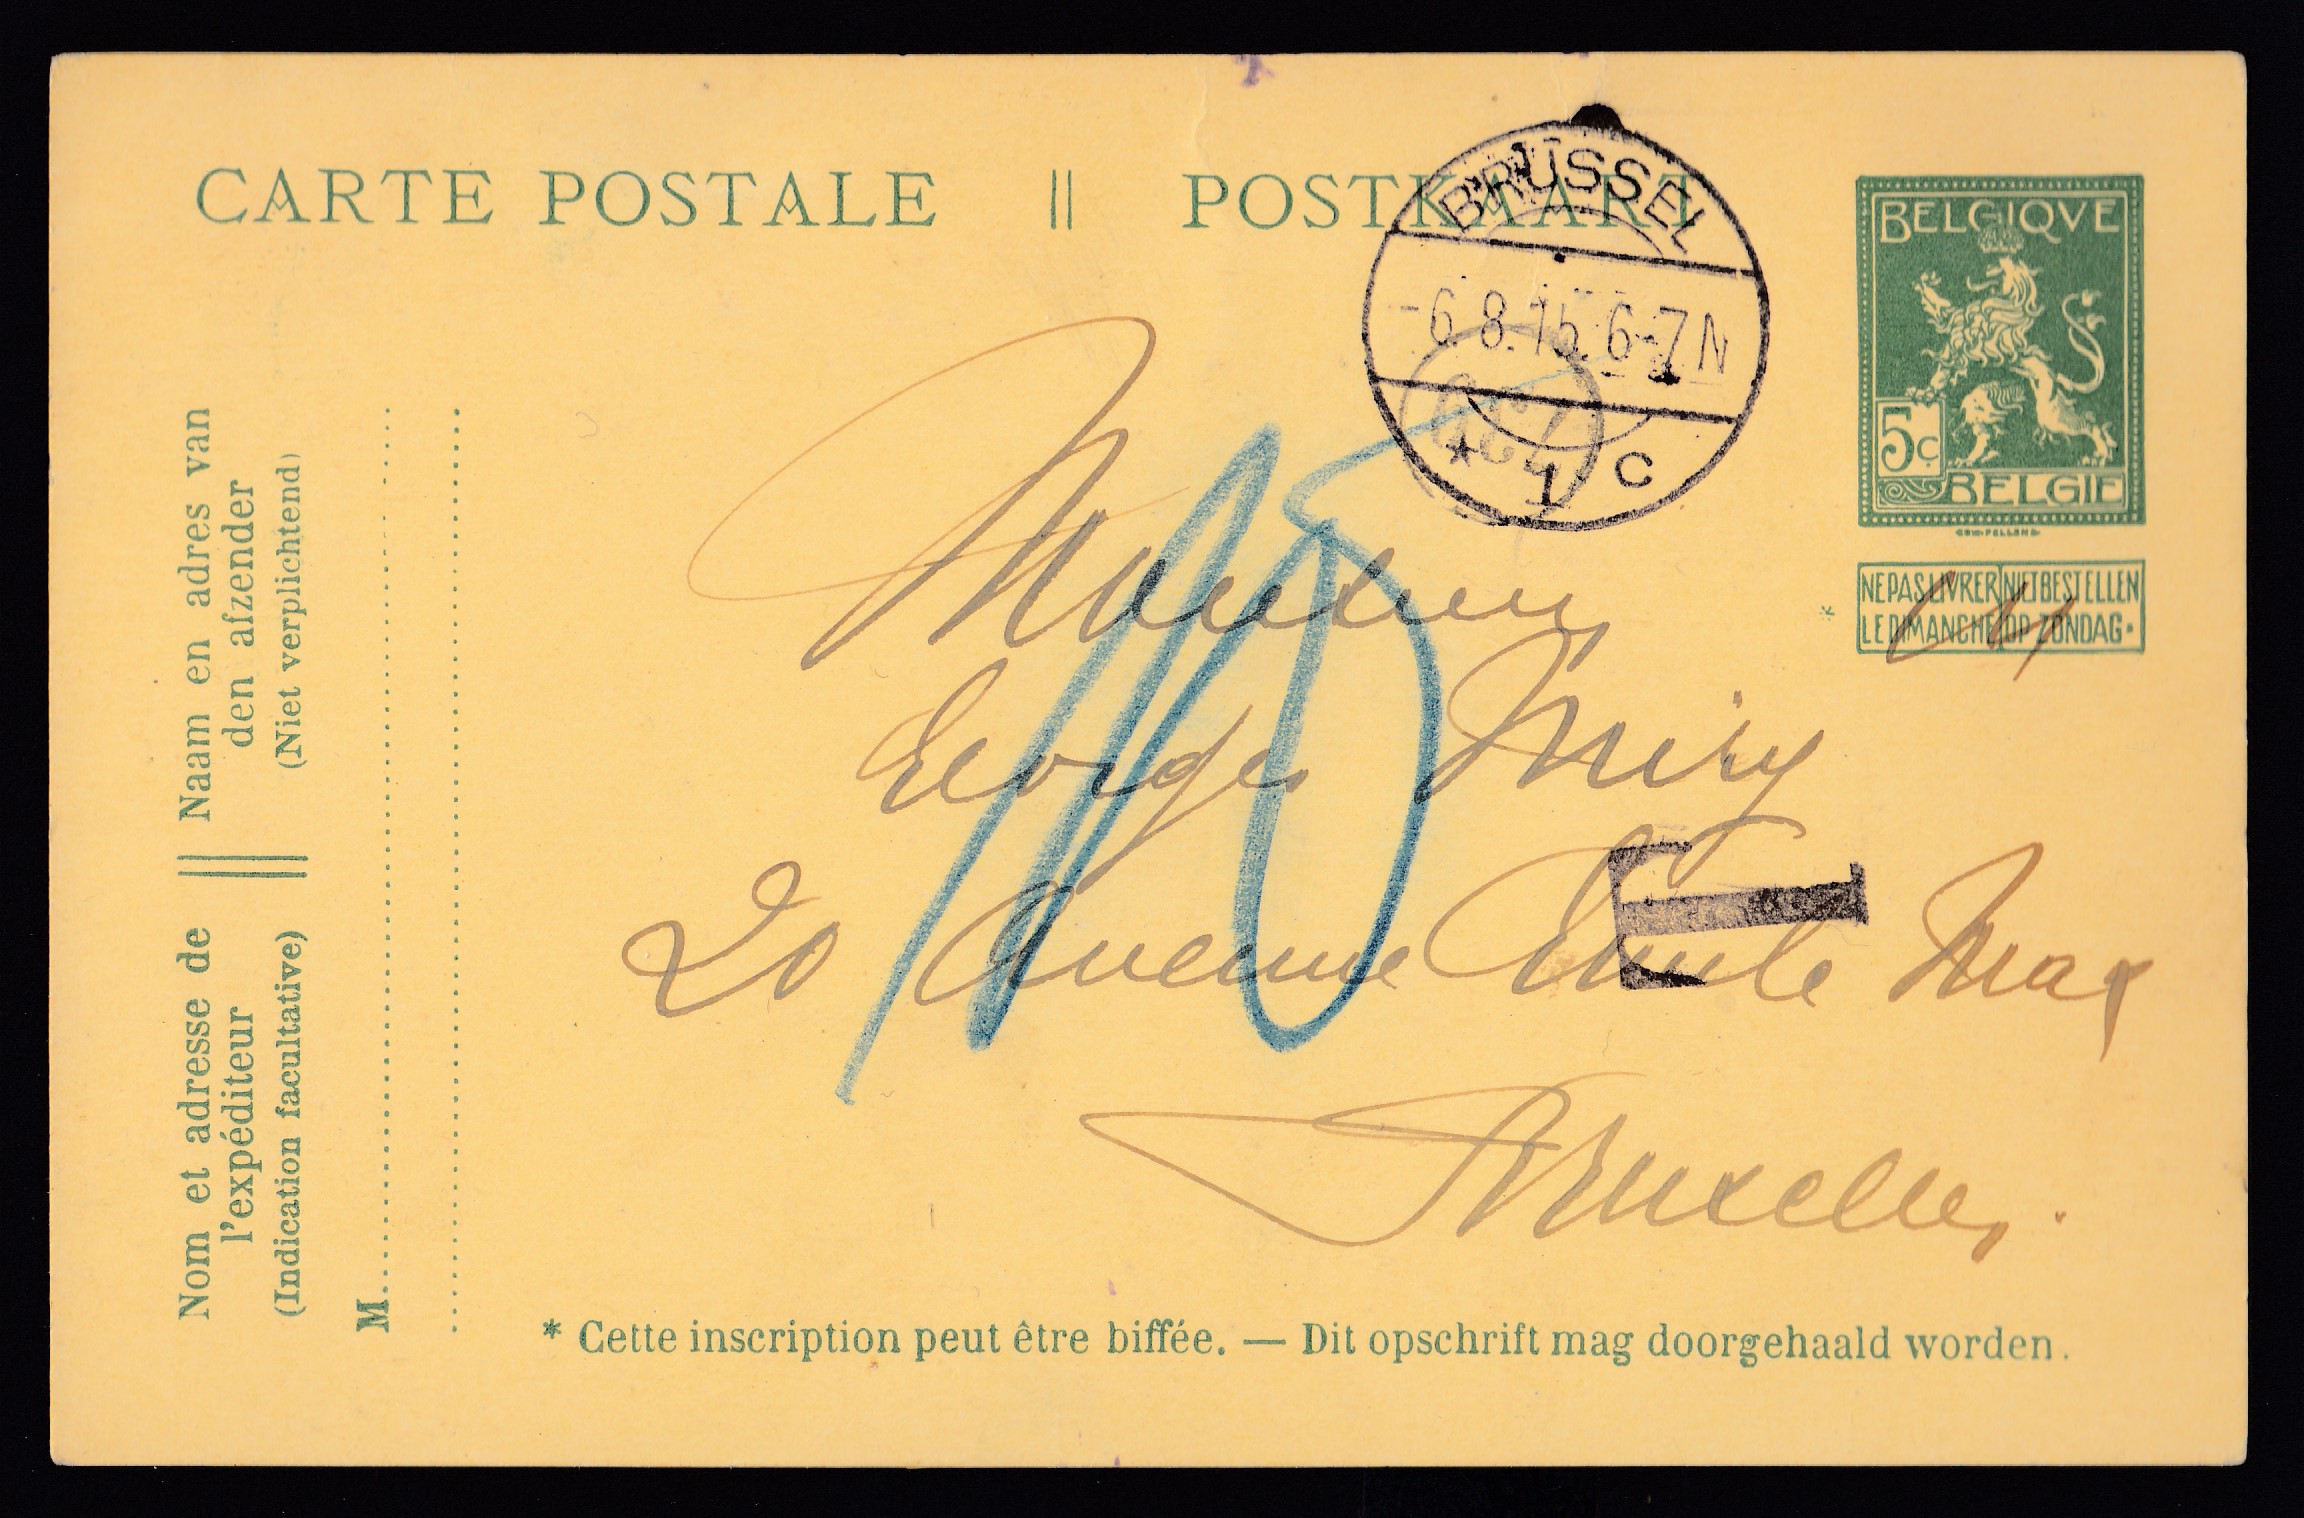 CARTE POSTALE || POSTKAART
BRÜSSEL
-6.8.15. 6-7 N
* 1 c
BELGIQVE
5c
BELGIE
NE PAS LIVRER NIET BESTELLEN
LE DIMANCHE OP ZONDAG.
*
Naam en adres van
den afzender
(Niet verplichtend)
Nom et adresse de
l'expéditeur
(Indication facultative)
M
Monsieur
Georges Miry
20 Avenue Emile Max
Bruxelles.
10
T
* Cette inscription peut être biffée. — Dit opschrift mag doorgehaald worden.